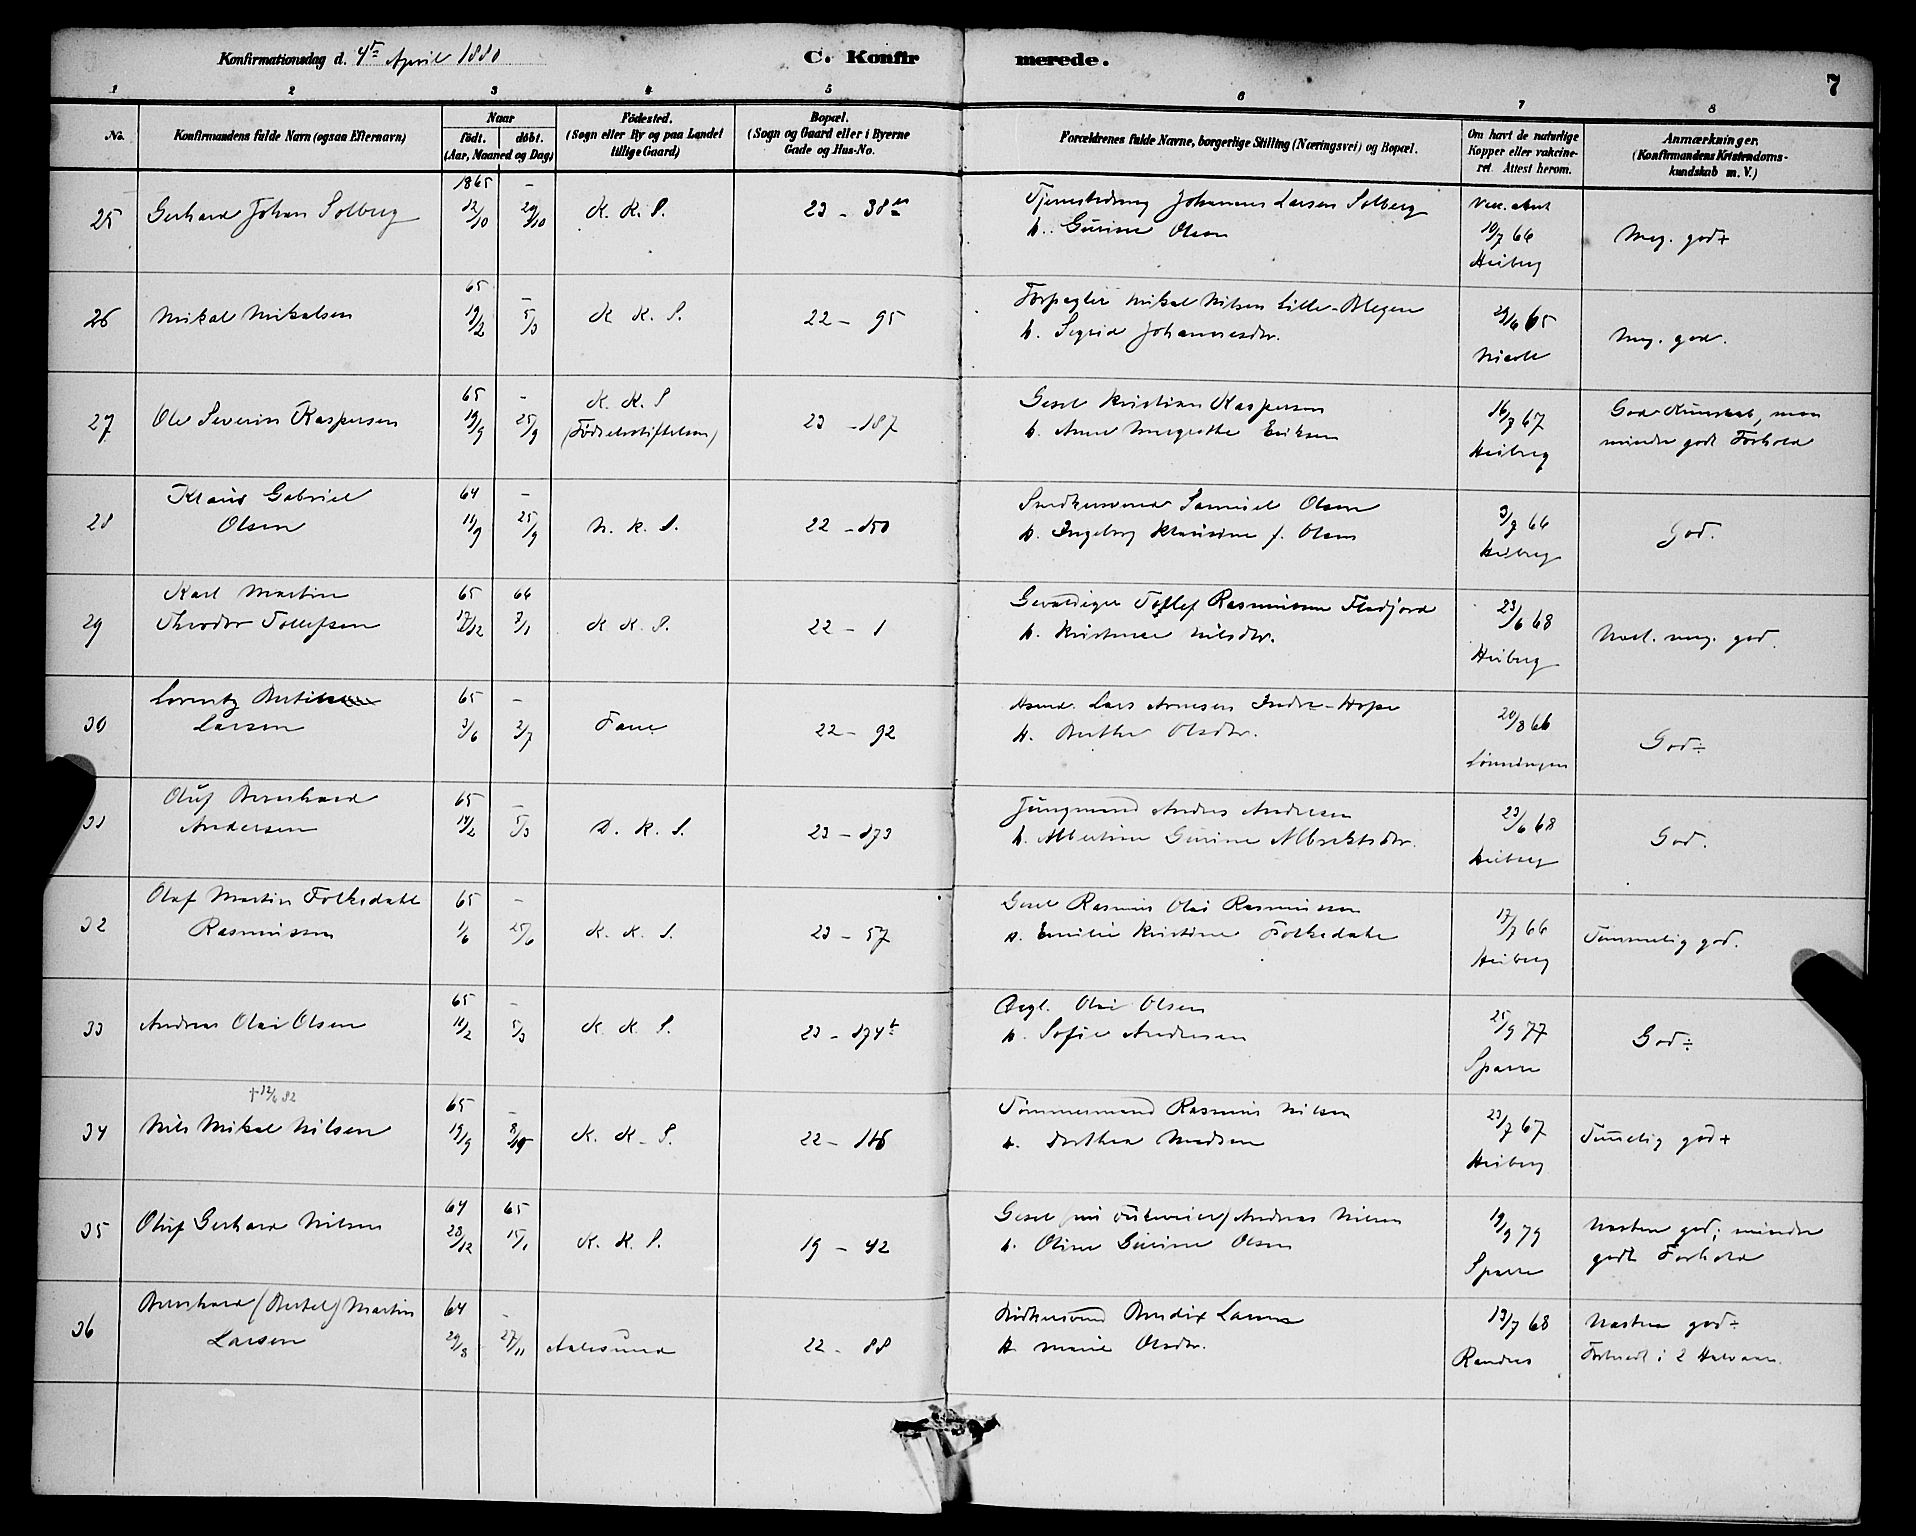 Konfirmationsdag d. 4de April 1880 C. Konfirmerede. 7
1 2 3 4 5 6 7 8
No. Konfirmandens fulde Navn (ogsaa Efternavn) Naar födt. döbt. (Aar, Maaned og Dag) Födested. (Sogn eller By og paa Landet tillige Gaard) Bopæl. (Sogn og Gaard eller i Byerne Gade og Hus-No. Forældrenes fulde Navne, borgerlige Stilling (Næringsvei) og Bopæl. Om havt de naturlige Kopper eller vakcineret. Attest herom. Anmærkninger. (Konfirmandens Kristendomskundskab m. V.)
1865 -
25 Gerhard Johan Solberg 12/10 29/10 K. K. S. 23 - 38 Johannes Larsen Solberg
h. Gurine Olsen 10/7 66 Meg. god +
Heiberg
65 -
26 Mikal Mikalsen 19/2 5/3 K K. S. 22 - 95 Mikal Nilsen Lille-Blegen 29/6 65
h. Sigrid Johannesdr. Meg. god.
65 - K. K. S
27 Ole Severin Kaspersen 19/9 25/9 (Födselsstiftelsen) 23 - 187 Gesel Kristian Kaspersen 16/7 67 God Kunskab, men
h. Anne Margrethe Eriksen Heiberg mindre godt Forhold
Klaus Gabriel 64 -
28 Olsen 11/9 25/9 N. K. S. 22 - 150 Snedkersvend Samuel Olsen 3/7 66
h. Ingeborg Klausine f. Olsen Heiberg God.
Karl Martin 65 66
29 Theodor Tollefsen 17/12 7/1 K K. S. 22 - 1 Gevaldiger Tollef Rasmussen Fladjord 23/6 68
h. Kristense Nilsdr. Heiberg meg. god.
Lorentz 65 -
30 Larsen 3/6 2/7 Fane 22 - 92 Lars Arnesen Indre-Hope 20/8 66
h. Berthe Olsdr. Lönningen God ÷
Oluf Bernhard 65 -
31 Andersen 14/2 5/3 D. K. S. 23 - 173 Jungmand Andreas Andresen 23/6 68
h. Albertine Gurine Albrektsdr. Heiberg God.
Olaf Martin Folkedahl 65 -
32 Rasmussen 1/6 25/6 K. K. S. 23 - 57 Gesel Rasmus Olai Rasmussen 17/7 66
h. Emilie Kristine Folkedahl Heiberg Temmelig god.
65 -
33 Andreas Olai Olsen 11/2 5/3 K. K. S. 23 - 174b Olai Olsen 25/9 77
h. Sofie Andresen Sparre God ÷
† 12/6 82
34 Nils Mikal Nilsen 65 19/9 8/10 K. K. S. 22 - 116 Tömmermand Rasmus Nilsen 23/7 67 Temelig god +
h. Dorthea Madsen Heiberg
64 65
35 Oluf Gerhard Nilsen 28/12 15/1 K. K. S. 19 - 42 Gesel Andreas Nilsen 19/9 79 Næsten god; mindre
h. Oline Gurine Olsen Sparre godt Forhold
Bernhard (Bertel) Martin 64 -
36 Larsen 29/8 27/11 Aalesund 22 - 88 Bödkersvend Bendix Larsen 13/7 68 Næsten god ÷
h. Marie Olsdr. Randers Forberedt i 2 Halvaar.